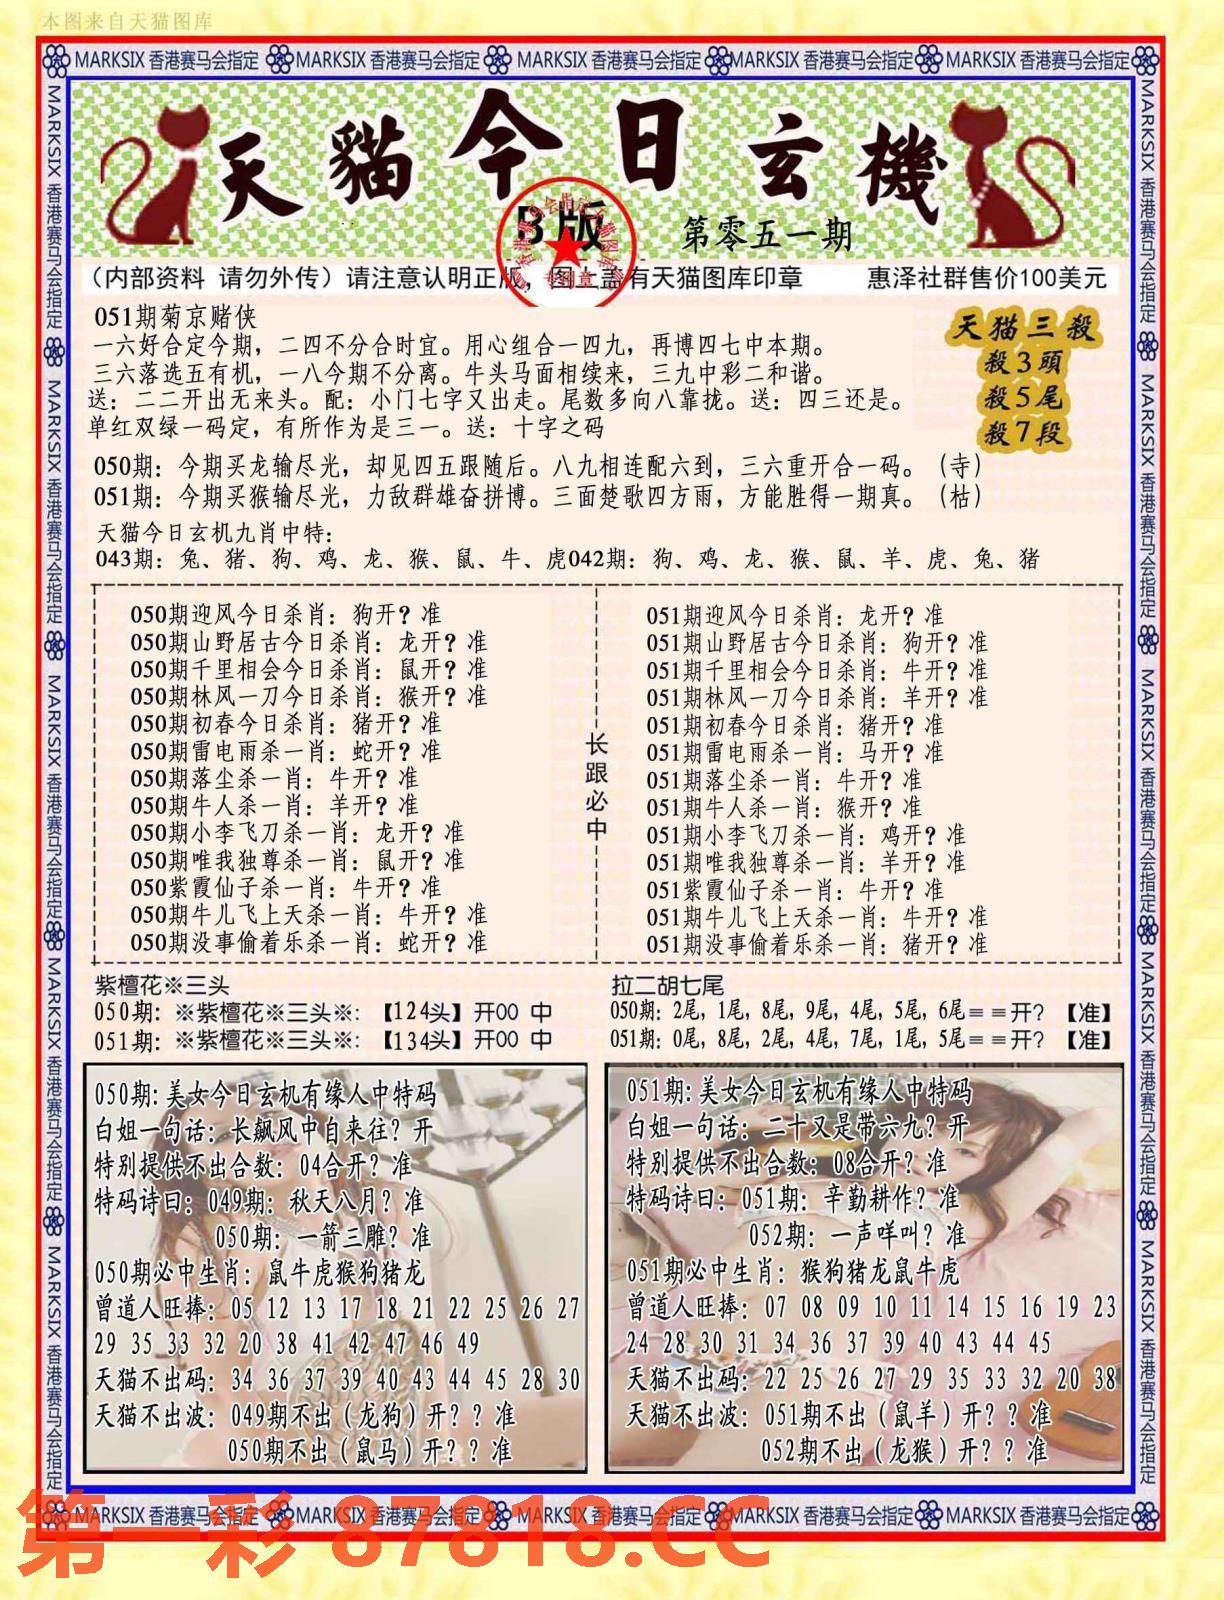 本图来自天猫图库
MARKSIX 香港赛马会指定 MARKSIX 香港赛马会指定 MARKSIX 香港赛马会指定 MARKSIX 香港赛马会指定 MARKSIX 香港赛马会指定
天貓今日玄機
B版
第零五一期
（内部资料 请勿外传）请注意认明正版，图上盖有天猫图库印章 惠泽社群售价100美元
051期菊京赌侠
一六好合定今期，二四不分合时宜。用心组合一四九，再博四七中本期。
三六落选五有机，一八今期不分离。牛头马面相续来，三九中彩二和谐。
送：二二开出无来头。配：小门七字又出走。尾数多向八靠拢。送：四三还是。
单红双绿一码定，有所作为是三一。送：十字之码
天猫三殺
殺3頭
殺5尾
殺7段
050期：今期买龙输尽光，却见四五跟随后。八九相连配六到，三六重开合一码。（寺）
051期：今期买猴输尽光，力敌群雄奋拼博。三面楚歌四方雨，方能胜得一期真。（枯）
天猫今日玄机九肖中特：
043期：兔、猪、狗、鸡、龙、猴、鼠、牛、虎042期：狗、鸡、龙、猴、鼠、羊、虎、兔、猪
050期迎风今日杀肖：狗开？准
050期山野居古今日杀肖：龙开？准
050期千里相会今日杀肖：鼠开？准
050期林风一刀今日杀肖：猴开？准
050期初春今日杀肖：猪开？准
050期雷电雨杀一肖：蛇开？准
050期落尘杀一肖：牛开？准
050期牛人杀一肖：羊开？准
050期小李飞刀杀一肖：龙开？准
050期唯我独尊杀一肖：鼠开？准
050紫霞仙子杀一肖：牛开？准
050期牛儿飞上天杀一肖：牛开？准
050期没事偷着乐杀一肖：蛇开？准
长跟必中
051期迎风今日杀肖：龙开？准
051期山野居古今日杀肖：狗开？准
051期千里相会今日杀肖：牛开？准
051期林风一刀今日杀肖：羊开？准
051期初春今日杀肖：猪开？准
051期雷电雨杀一肖：马开？准
051期落尘杀一肖：牛开？准
051期牛人杀一肖：猴开？准
051期小李飞刀杀一肖：鸡开？准
051期唯我独尊杀一肖：羊开？准
051紫霞仙子杀一肖：牛开？准
051期牛儿飞上天杀一肖：牛开？准
051期没事偷着乐杀一肖：猪开？准
紫檀花※三头
050期：※紫檀花※三头※：【124头】开00 中
051期：※紫檀花※三头※：【134头】开00 中
拉二胡七尾
050期：2尾，1尾，8尾，9尾，4尾，5尾，6尾＝＝开？【准】
051期：0尾，8尾，2尾，4尾，7尾，1尾，5尾＝＝开？【准】
050期：美女今日玄机有缘人中特码
白姐一句话：长飙风中自来往？开
特别提供不出合数：04合开？准
特码诗曰：049期：秋天八月？准
050期：一箭三雕？准
050期必中生肖：鼠牛虎猴狗猪龙
曾道人旺捧：05 12 13 17 18 21 22 25 26 27
29 35 33 32 20 38 41 42 47 46 49
天猫不出码：34 36 37 39 40 43 44 45 28 30
天猫不出波：049期不出（龙狗）开？？准
050期不出（鼠马）开？？准
051期：美女今日玄机有缘人中特码
白姐一句话：二十又是带六九？开
特别提供不出合数：08合开？准
特码诗曰：051期：辛勤耕作？准
052期：一声咩叫？准
051期必中生肖：猴狗猪龙鼠牛虎
曾道人旺捧：07 08 09 10 11 14 15 16 19 23
24 28 30 31 34 36 37 39 40 43 44 45
天猫不出码：22 25 26 27 29 35 33 32 20 38
天猫不出波：051期不出（鼠羊）开？？准
052期不出（龙猴）开？？准
MARKSIX 香港赛马会指定 MARKSIX 香港赛马会指定 MARKSIX 香港赛马会指定 MARKSIX 香港赛马会指定 MARKSIX 香港赛马会指定
第一彩 87818.CC
MARKSIX 香港赛马会指定 MARKSIX 香港赛马会指定 MARKSIX 香港赛马会指定 MARKSIX 香港赛马会指定 MARKSIX 香港赛马会指定
MARKSIX 香港赛马会指定 MARKSIX 香港赛马会指定 MARKSIX 香港赛马会指定 MARKSIX 香港赛马会指定 MARKSIX 香港赛马会指定